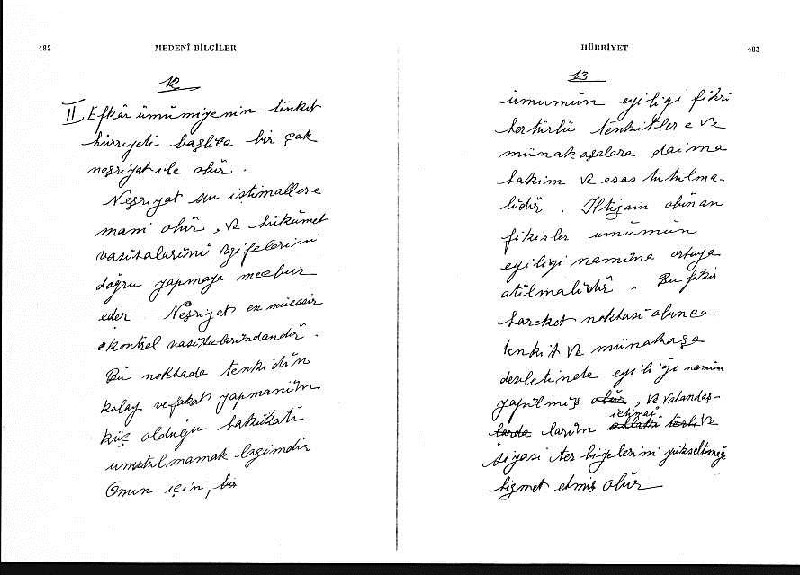 482
MEDENÎ BİLGİLER
12
II Efkâr ümumiyenin tenkit
hürriyeti başlıca bir çok
neşriyat ile olur.
Neşriyat su istimallere
mani olur, ve hükûmet
vasıtalarını vazifelerini
doğru yapmağa mecbur
eder. Neşriyat en müessir
kontrol vasıtalarındandır.
Bu noktada tenkidin
kolay ve fakat yapmanın
güç olduğu hakikati
unutulmamak lazımdır
Onun için, bir
HÜRRİYET
483
13
umumun eyiliği fikri
her türlü tenkitlere ve
münakaşalara daima
hakim ve esas tutulma-
lıdır. İltizam olunan
fikirler umumun
eyiliği namına ortaya
atılmalıdır. Bu fikir
hareket noktası olunca
tenkit ve münakaşa
devletinde eyiliği namına
yapılmış olur, ve vatandaş-
larda ların içtimaî ahlakî ve
siyasi terbiyelerini yükseltmeğe
hizmet etmiş olur